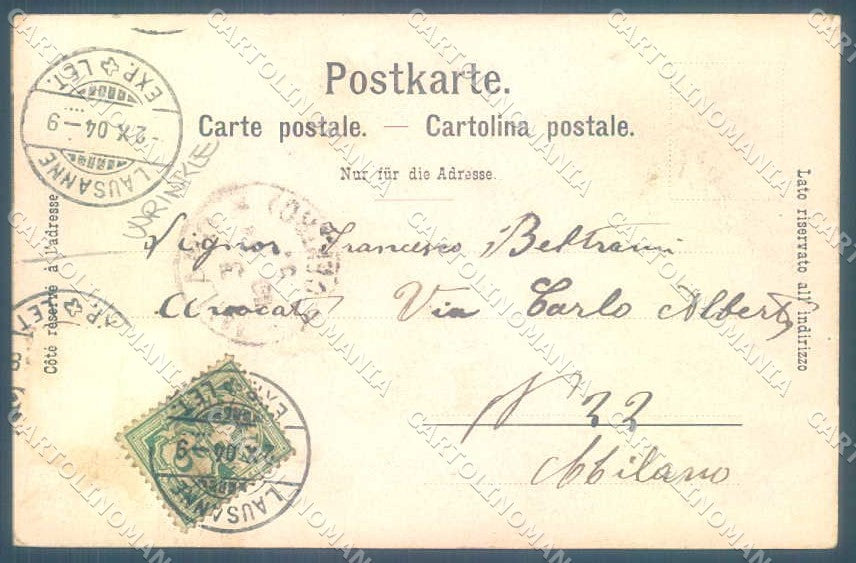 Postkarte.
Carte postale. — Cartolina postale.
Nur für die Adresse.
Côté réservé à l'adresse
Lato riservato all' indirizzo
LAUSANNE
-2.X.04-9
EXP. LET.
WRINKLE
Signor Francesco Beltrami
Avvocato Via Carlo Alberto
N 22
Milano
LAUSANNE
2.X.04-9
EXP. LET.
EXP.
LET.
CARTOLINOMANIA